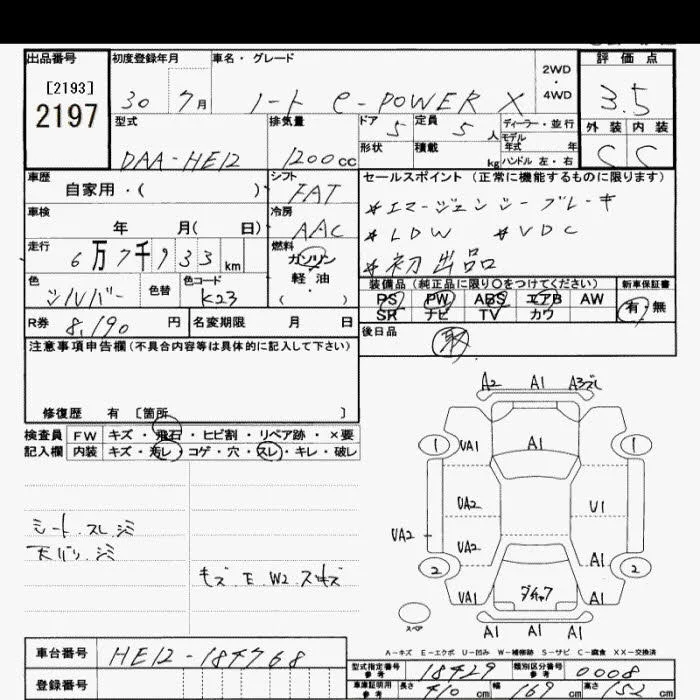 出品番号 初度登録年月 車名・グレード 2WD・4WD 評価点
[2193]
2197
30 7月 ノート e-POWER X 3.5
型式 排気量 ドア 5 定員 5人 ディーラー・並行 外装 内装
モデル年式 年
DAA-HE12 1200cc 形状 積載 kg ハンドル 左・右 C C
車歴 シフト セールスポイント（正常に機能するものに限ります）
自家用・( ) FAT *エマージェンシーブレーキ
車検 冷房 *LDW *VDC
年 月( 日) AAC *初出品
走行 燃料
6万7千933km ガソリン 装備品（純正品に限り○をつけてください） 新車保証書
色 色替 色コード 軽油 PS PW ABS エアB AW 有 無
シルバー K23 ( ) SR ナビ TV カワ
R券 8,190円 名変期限 月 日 後日品
取
注意事項申告欄（不具合内容等は具体的に記入して下さい）
修復歴 有 〔箇所 〕
検査員 FW キズ・飛石・ヒビ割・リペア跡・×要
記入欄 内装 キズ・汚レ・コゲ・穴・スレ・キレ・破レ
A2 A1
1 VA1 A1 1
UA2 U1
VA2 UA2 A1
2 2
VA1 A1
A1 A1
シート.スレ.シミ
天バリ.シミ
キズ.E.W2
スペア
A-キズ E-エクボ U-凹み W-補修跡 S-サビ C-腐食 XX-交換済
車台番号 HE12-184768
登録番号
型式指定番号 参考 18429 類別区分番号 参考 0008
車庫証明用 参考 長さ 410cm 幅 169cm 高さ 152cm